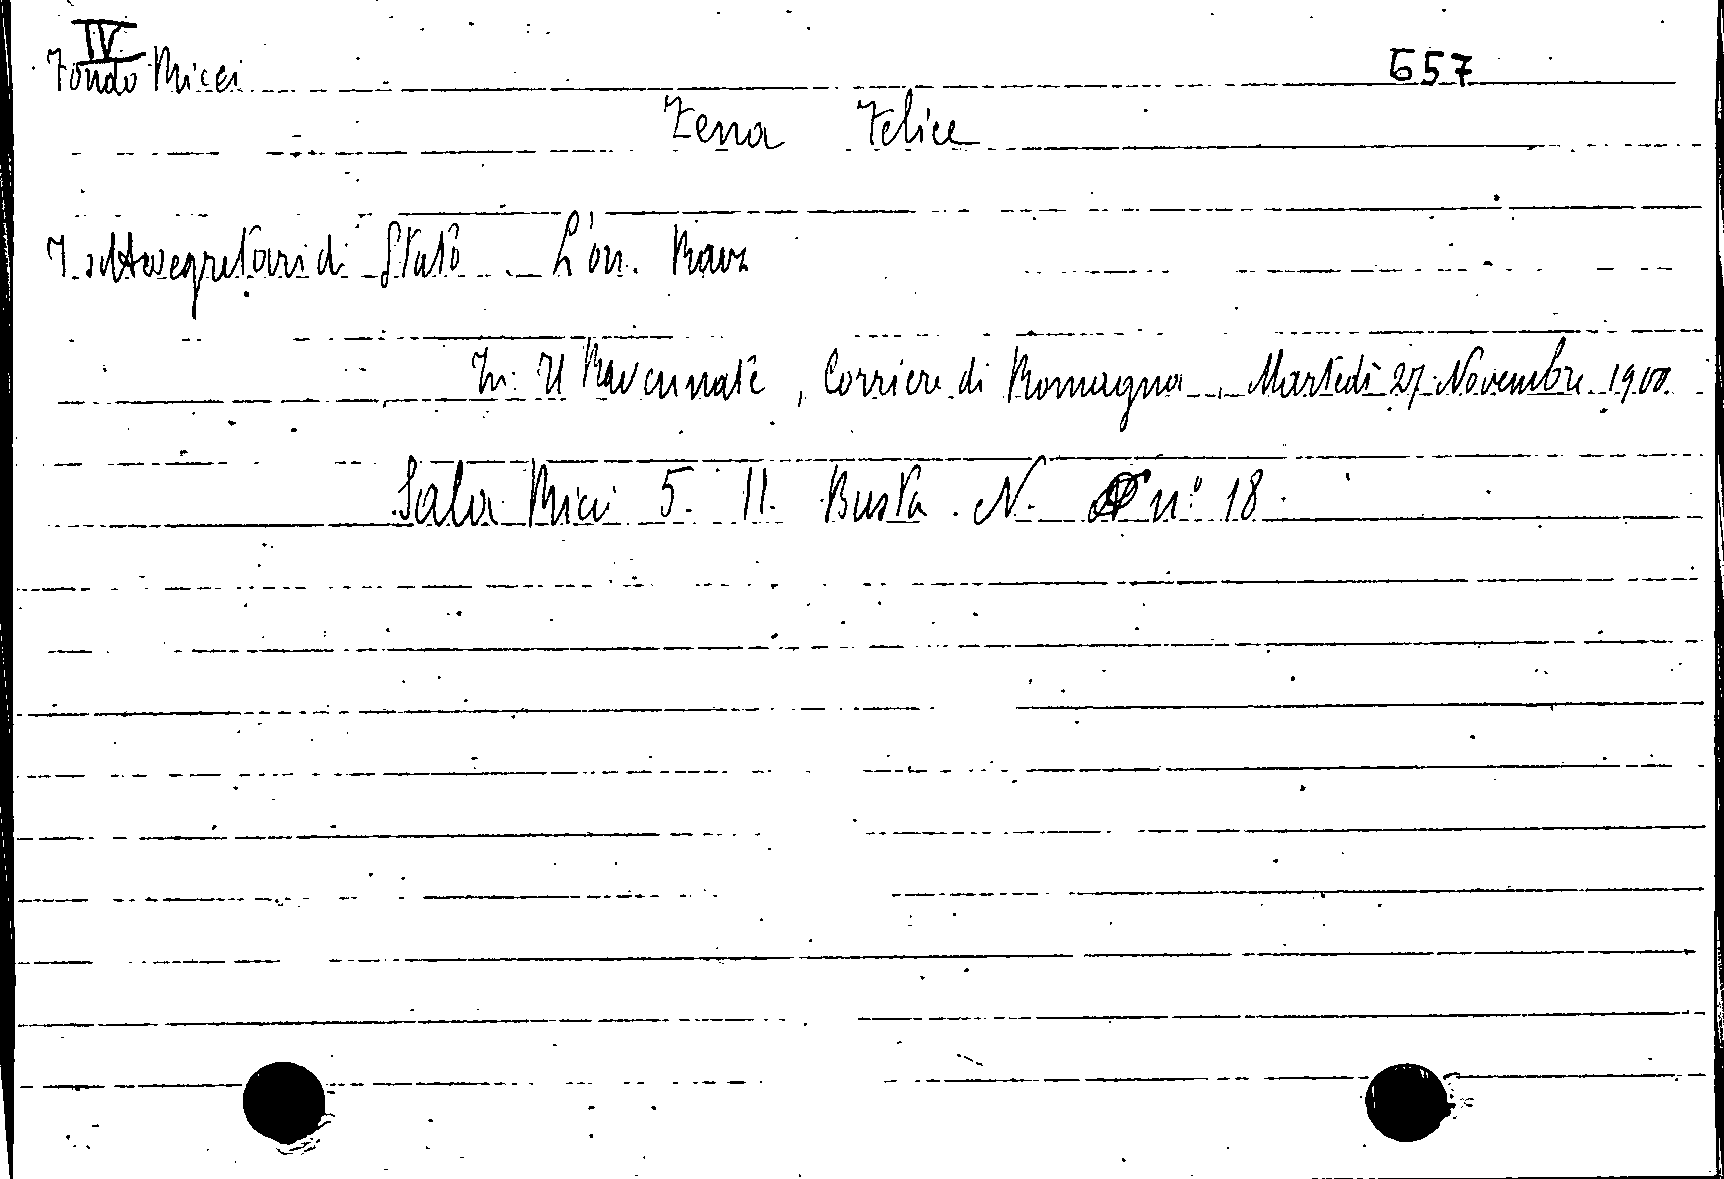 IV
Fondo Ricci 657
Zena Felice
I sottosegretari di Stato. L'on. Rava
In: Il Ravennate, Corriere di Romagna, Martedì 27 Novembre 1900.
Sala Ricci 5. 11. Busta. N. n° 18.